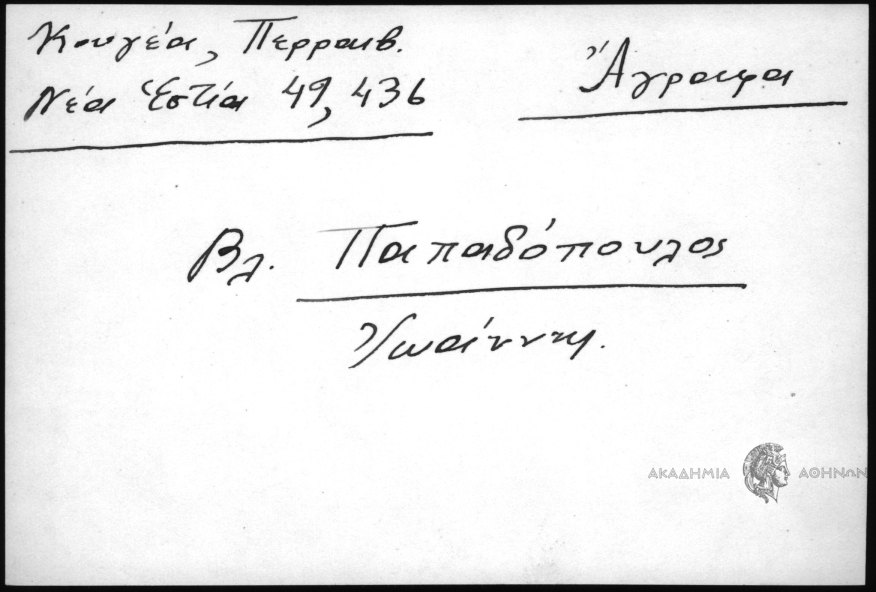 Κουγέα, Περραιβ.
Νέα Ἑστία 49, 436
Ἄγραφα
Βλ. Παπαδόπουλος
Ἰωάννης.
ΑΚΑΔΗΜΙΑ ΑΘΗΝΩΝ